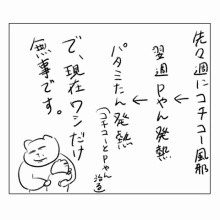 先々週にコチコー風邪
↓
翌週Pやん発熱
↓
パタミたん発熱
(コチコーとPやん
治る)
で、現在ワシだけ
無事です。